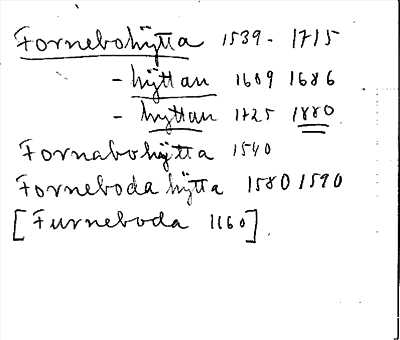 Fornebohÿtta 1539 - 1715
- hÿttan 1689 1686
- hyttan 1725 1880
Fornabohÿtta 1540
Forneboda hÿtta 1580 1590
[Furneboda 1160]